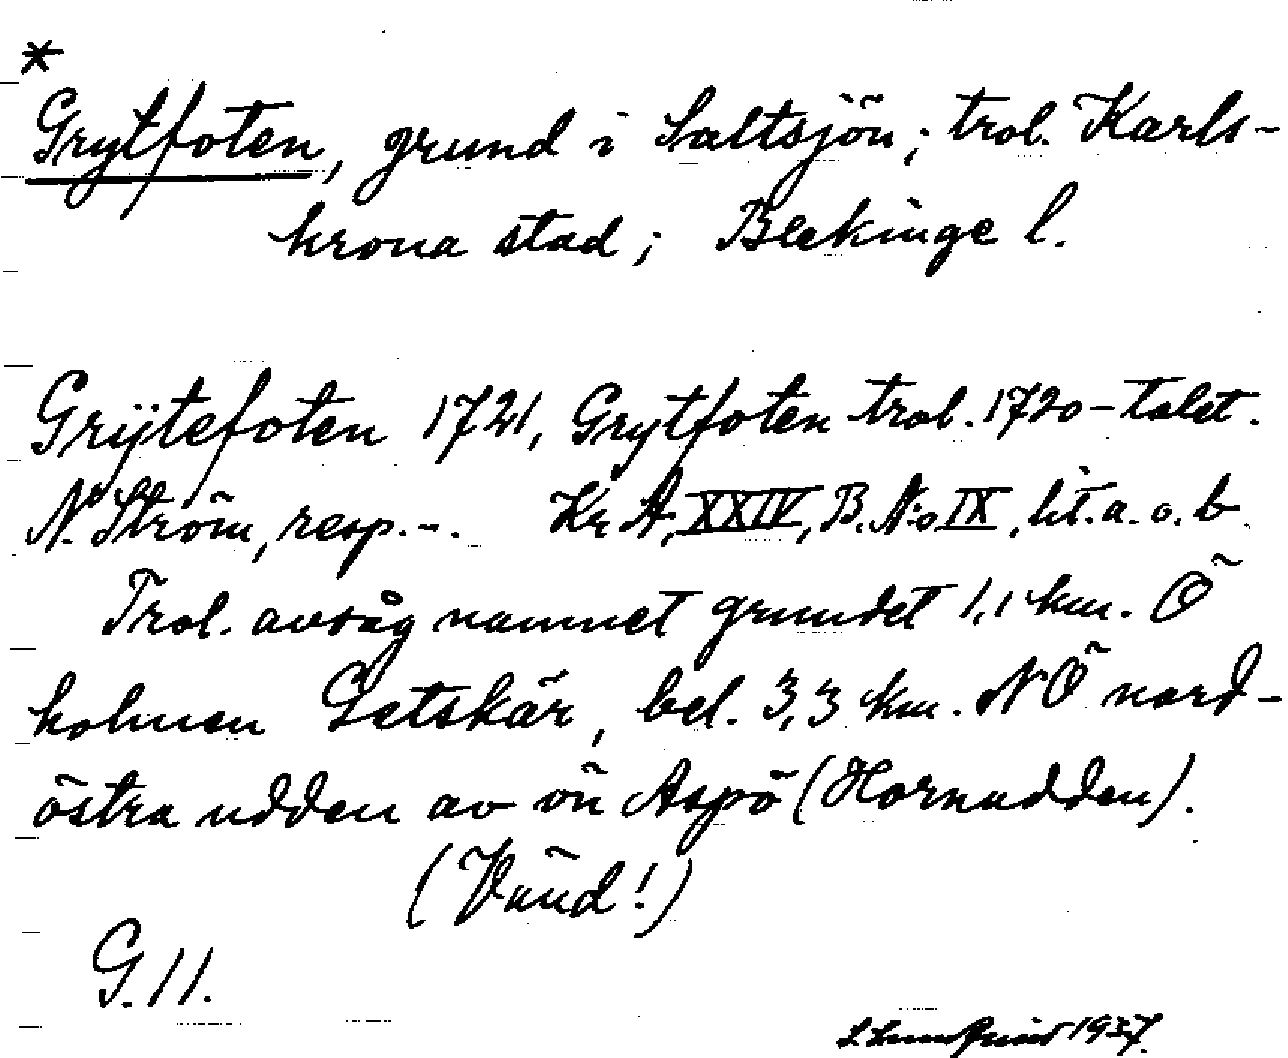 *
Grytfoten, grund i Saltsjön; trol. Karls-
krona stad; Blekinge l.
Grÿtefoten 1721, Grytfoten trol. 1720-talet.
N. Ström, resp. -. Kr. A, XXIV, B. N:o IX, lit. a. o. b
Trol. avsåg namnet grundet 1,1 km. Ö
holmen Getskär, bel. 3,3 km. NÖ nord-
östra udden av ön Aspö (Hornudden).
(Vänd!)
G. 11.
1937.